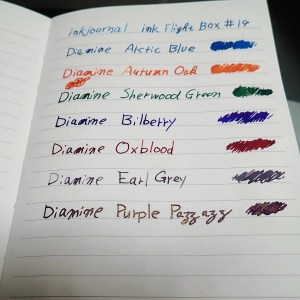 inkjournal ink Flight Box #19
Diamine Arctic Blue
Diamine Autumn Oak
Diamine Sherwood Green
Diamine Bilberry
Diamine Oxblood
Diamine Earl Grey
Diamine Purple Pazzazz